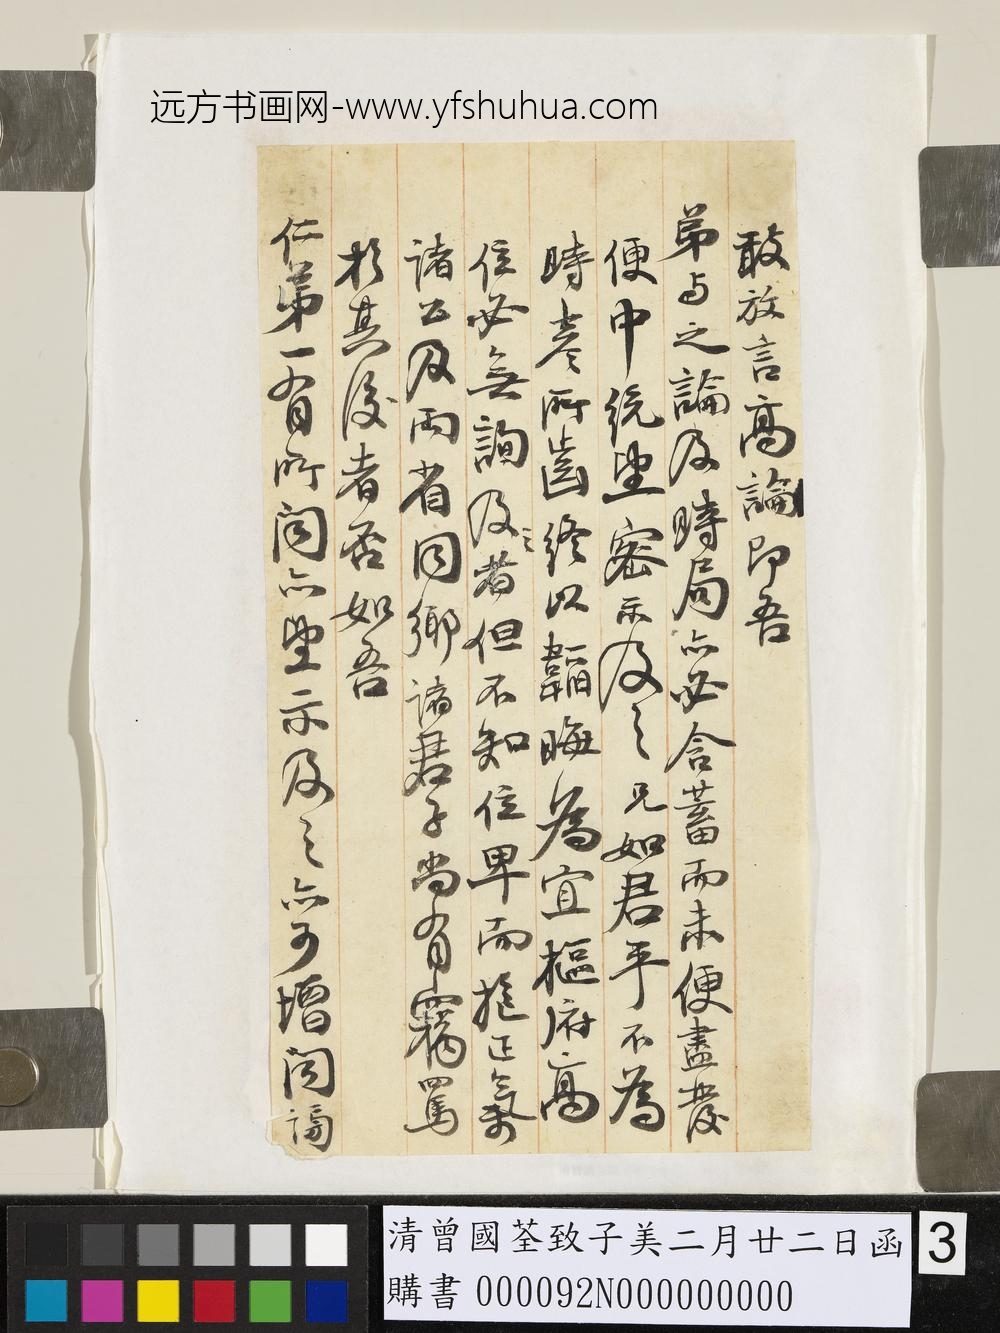 远方书画网-www.yfshuhua.com
敢放言高論即吾
弟与之論及時局亦必含蓄而未便盡發
便中统望密示及之兄如君平不為
時彥所齒終以韜晦為宜樞府高
位必無詢及之者但不知位卑而抱正氣
諸公及兩省同鄉諸君子尚有竊罵
於其後者否如吾
仁弟一有所聞亦望示及之亦可增聞
清曾國荃致子美二月廿二日函
購書 000092N000000000
3